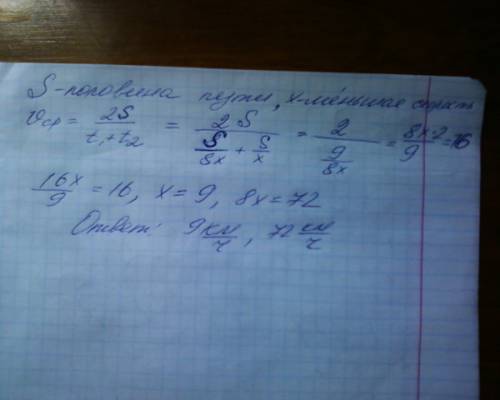 S-половина пути, x-меньшая скорость
Vср = 2S/(t₁+t₂) = 2S/(S/8x + S/x) = 2/(9/8x) = 8x·2/9 = 16
16x/9 = 16, x = 9, 8x = 72
Ответ: 9 км/ч, 72 км/ч